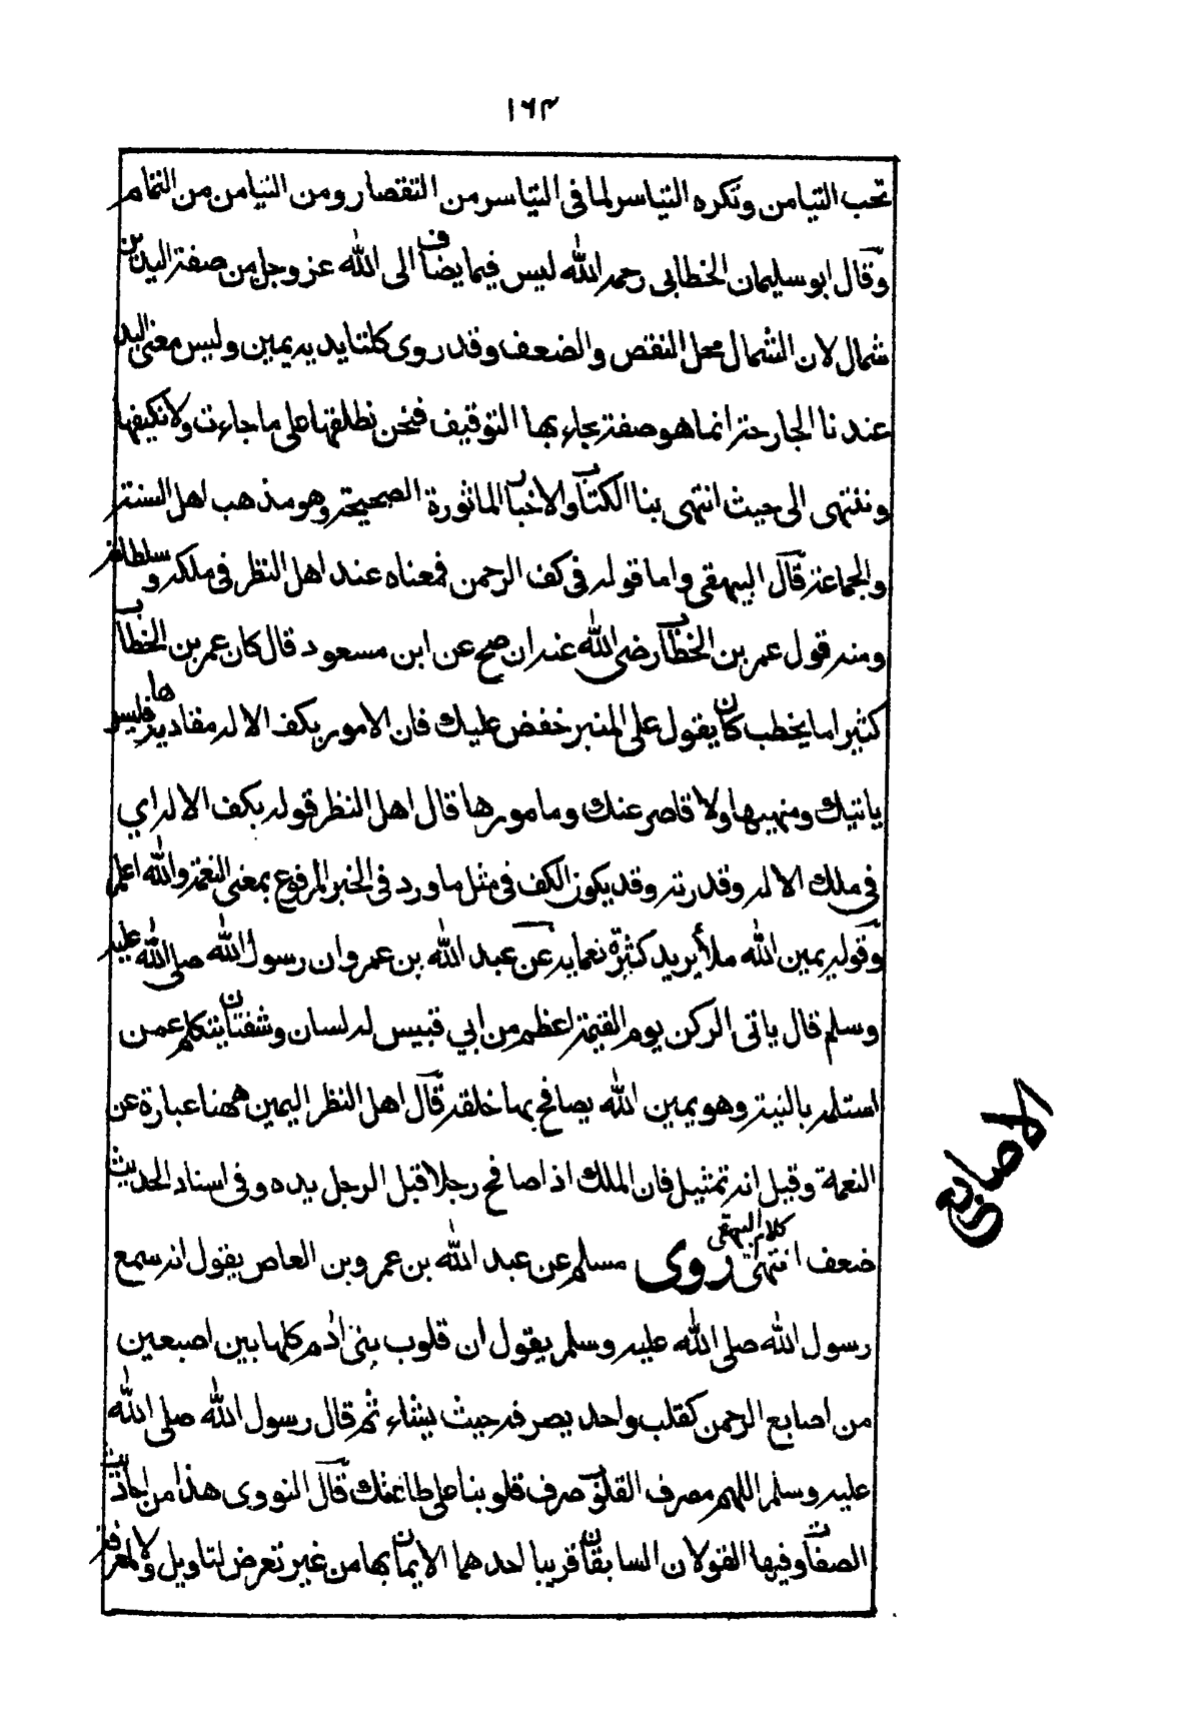 ١٦٣
تحب التيامن وتكره التياسر لما فى التياسر من التقصار ومن التيامن من التمام
وقال ابو سليمان الخطابى رحمه الله ليس فيما يضاف الى الله عز وجل من صفة اليدين
شمال لان الشمال محل النقص والضعف وقد روى كلتا يديه يمين وليس معنى اليد
عندنا الجارحة انما هو صفة جاء بها التوقيف فنحن نطلقها على ما جاءت ولا نكيفها
وننتهى الى حيث انتهى بنا الكتاب والاخبار الماثورة الصحيحة وهو مذهب اهل السنة
والجماعة قال البيهقى واما قوله فى كف الرحمن فمعناه عند اهل النظر فى ملكه وسلطانه
ومنه قول عمر بن الخطاب رضى الله عنه ان صح عن ابن مسعود قال كان عمر بن الخطاب
كثيرا ما يخطب كان يقول على المنبر خفض عليك فان الامور بكف الاله مقاديرها فليس
ياتيك ومنهيها ولا قاصر عنك ومامورها قال اهل النظر قوله بكف الاله اي
فى ملك الاله وقدرته وقد يكون الكف فى مثل ما ورد فى الخبر المرفوع بمعنى النعمة والله اعلم
وقوله يمين الله ملأ يريد كثرة نعمايه عن عبد الله بن عمرو ان رسول الله صلى الله عليه
وسلم قال ياتى الركن يوم القيمة اعظم من ابي قبيس له لسان وشفتان يتكلم عمن
استلمه بالنية وهو يمين الله يصافح بها خلقه قال اهل النظر اليمين ههنا عبارة عن
النعمة وقيل انه تمثيل فان الملك اذا صافح رجلا قبل الرجل يده وفى اسناد الحديث
ضعف انتهى كلام البيهقى روى مسلم عن عبد الله بن عمرو بن العاص يقول انه سمع
رسول الله صلى الله عليه وسلم يقول ان قلوب بنى ادم كلها بين اصبعين
من اصابع الرحمن كقلب واحد يصرفه حيث يشاء ثم قال رسول الله صلى الله
عليه وسلم اللهم مصرف القلوب صرف قلوبنا على طاعتك قال النووى هذا من احاديث
الصفات وفيها القولان السابقان قريبا احدهما الايمان بها من غير تعرض لتاويل ولا لمعرفة
الاصابع